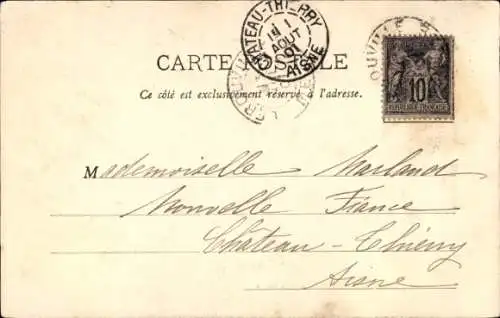 CHÂTEAU-THIERRY
1
AOUT
01
AISNE
CARTE POSTALE
Ce côté est exclusivement réservé à l'adresse.
10
REPUBLIQUE FRANÇAISE
Mademoiselle Marland
Nouvelle France
Château-Thierry
Aisne